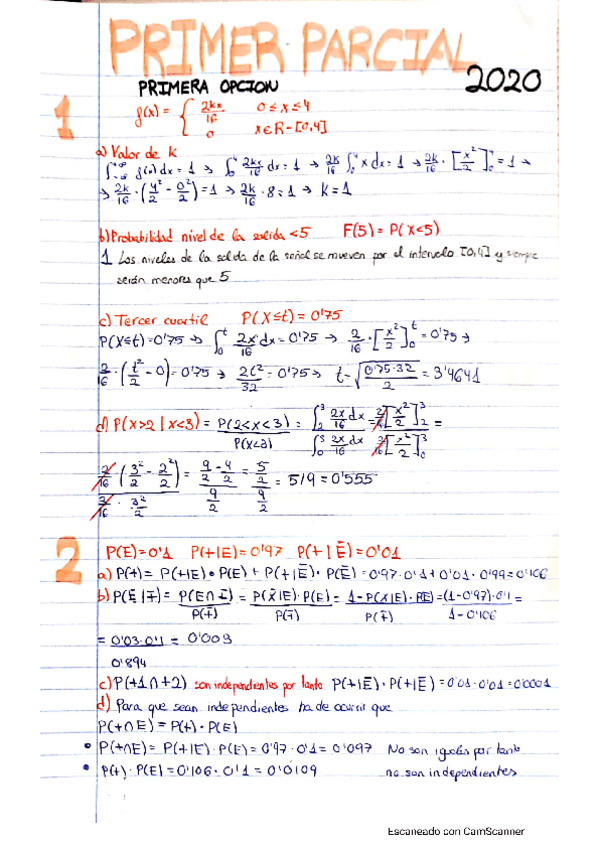 PRIMER PARCIAL
PRIMERA OPCION 2020
1 f(x) = { 2kx/16 0 ≤ x ≤ 4
0 x ∈ R - [0,4]
a) Valor de k
∫_{-∞}^{+∞} f(x) dx = 1 → ∫_0^4 2kx/16 dx = 1 → 2k/16 ∫_0^4 x dx = 1 → 2k/16 · [x²/2]_0^4 = 1 →
→ 2k/16 · (4²/2 - 0²/2) = 1 → 2k/16 · 8 = 1 → k = 1
b) Probabilidad nivel de la salida < 5 F(5) = P(X<5)
1 Los niveles de la salida de la señal se mueven por el intervalo [0,4] y siempre
serán menores que 5
c) Tercer cuartil P(X≤t) = 0'75
P(X≤t) = 0'75 → ∫_0^t 2x/16 dx = 0'75 → 2/16 · [x²/2]_0^t = 0'75 →
2/16 · (t²/2 - 0) = 0'75 → 2t²/32 = 0'75 → t = √(0'75·32/2) = 3'4641
d) P(X>2 | X<3) = P(2<X<3)/P(X<3) = ∫_2^3 2x/16 dx / ∫_0^3 2x/16 dx = 2/16 [x²/2]_2^3 / 2/16 [x²/2]_0^3 =
2/16 (3²/2 - 2²/2) / 2/16 · 3²/2 = (9/2 - 4/2) / 9/2 = 5/2 / 9/2 = 5/9 = 0'555
2 P(E) = 0'1 P(+|E) = 0'97 P(+|Ē) = 0'01
a) P(+) = P(+|E) · P(E) + P(+|Ē) · P(Ē) = 0'97 · 0'1 + 0'01 · 0'99 = 0'106
b) P(E|∓) = P(E∩∓)/P(∓) = P(∓|E) · P(E)/P(∓) = 1 - P(+|E) · P(E)/P(∓) = (1 - 0'97) · 0'1/1 - 0'106 =
= 0'03 · 0'1/0'894 = 0'003
c) P(+1 ∩ +2) son independientes por tanto P(+|Ē) · P(+|Ē) = 0'01 · 0'01 = 0'0001
d) Para que sean independientes ha de ocurrir que
P(+∩E) = P(+) · P(E)
• P(+∩E) = P(+|E) · P(E) = 0'97 · 0'1 = 0'097 No son iguales por tanto
• P(+) · P(E) = 0'106 · 0'1 = 0'0109 no son independientes
Escaneado con CamScanner